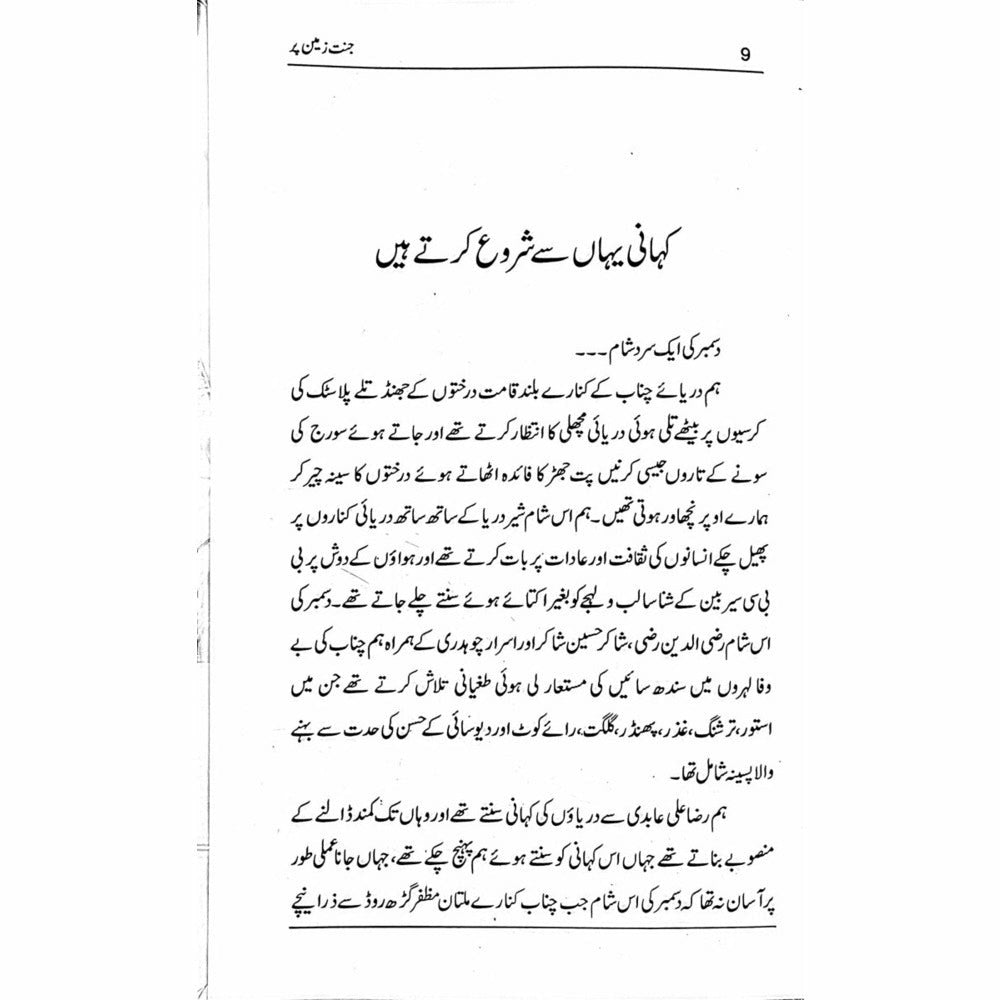 جنت زمین پر
9
کہانی یہاں سے شروع کرتے ہیں
دسمبر کی ایک سرد شام ۔۔۔
ہم دریائے چناب کے کنارے بلند قامت درختوں کے جھنڈ تلے پلاسٹک کی
کرسیوں پر بیٹھے تلی ہوئی دریائی مچھلی کا انتظار کرتے تھے اور جاتے ہوئے سورج کی
سونے کے تاروں جیسی کرنیں پت جھڑ کا فائدہ اٹھاتے ہوئے درختوں کا سینہ چیر کر
ہمارے اوپر نچھاور ہوتی تھیں۔ ہم اس شام شیر دریا کے ساتھ ساتھ دریائی کناروں پر
پھیل چکے انسانوں کی ثقافت اور عادات پر بات کرتے تھے اور ہواؤں کے دوش پر بی
بی سی سیربین کے شناسا لب و لہجے کو بغیر اکتائے ہوئے سنتے چلے جاتے تھے۔ دسمبر کی
اس شام رضی الدین رضی، شاکر حسین شاکر اور اسرار چوہدری کے ہمراہ ہم چناب کی بے
وفا لہروں میں سندھ سائیں کی مستعار لی ہوئی طغیانی تلاش کرتے تھے جن میں
استور، ترشنگ، غذر، پھنڈر، گلگت، رائے کوٹ اور دیوسائی کے حسن کی حدت سے بہنے
والا پسینہ شامل تھا۔
ہم رضا علی عابدی سے دریاؤں کی کہانی سنتے تھے اور وہاں تک کمند ڈالنے کے
منصوبے بناتے تھے جہاں اس کہانی کو سنتے ہوئے ہم پہنچ چکے تھے، جہاں جانا عملی طور
پر آسان نہ تھا کہ دسمبر کی اس شام جب چناب کنارے ملتان مظفر گڑھ روڈ سے ذرا نیچے